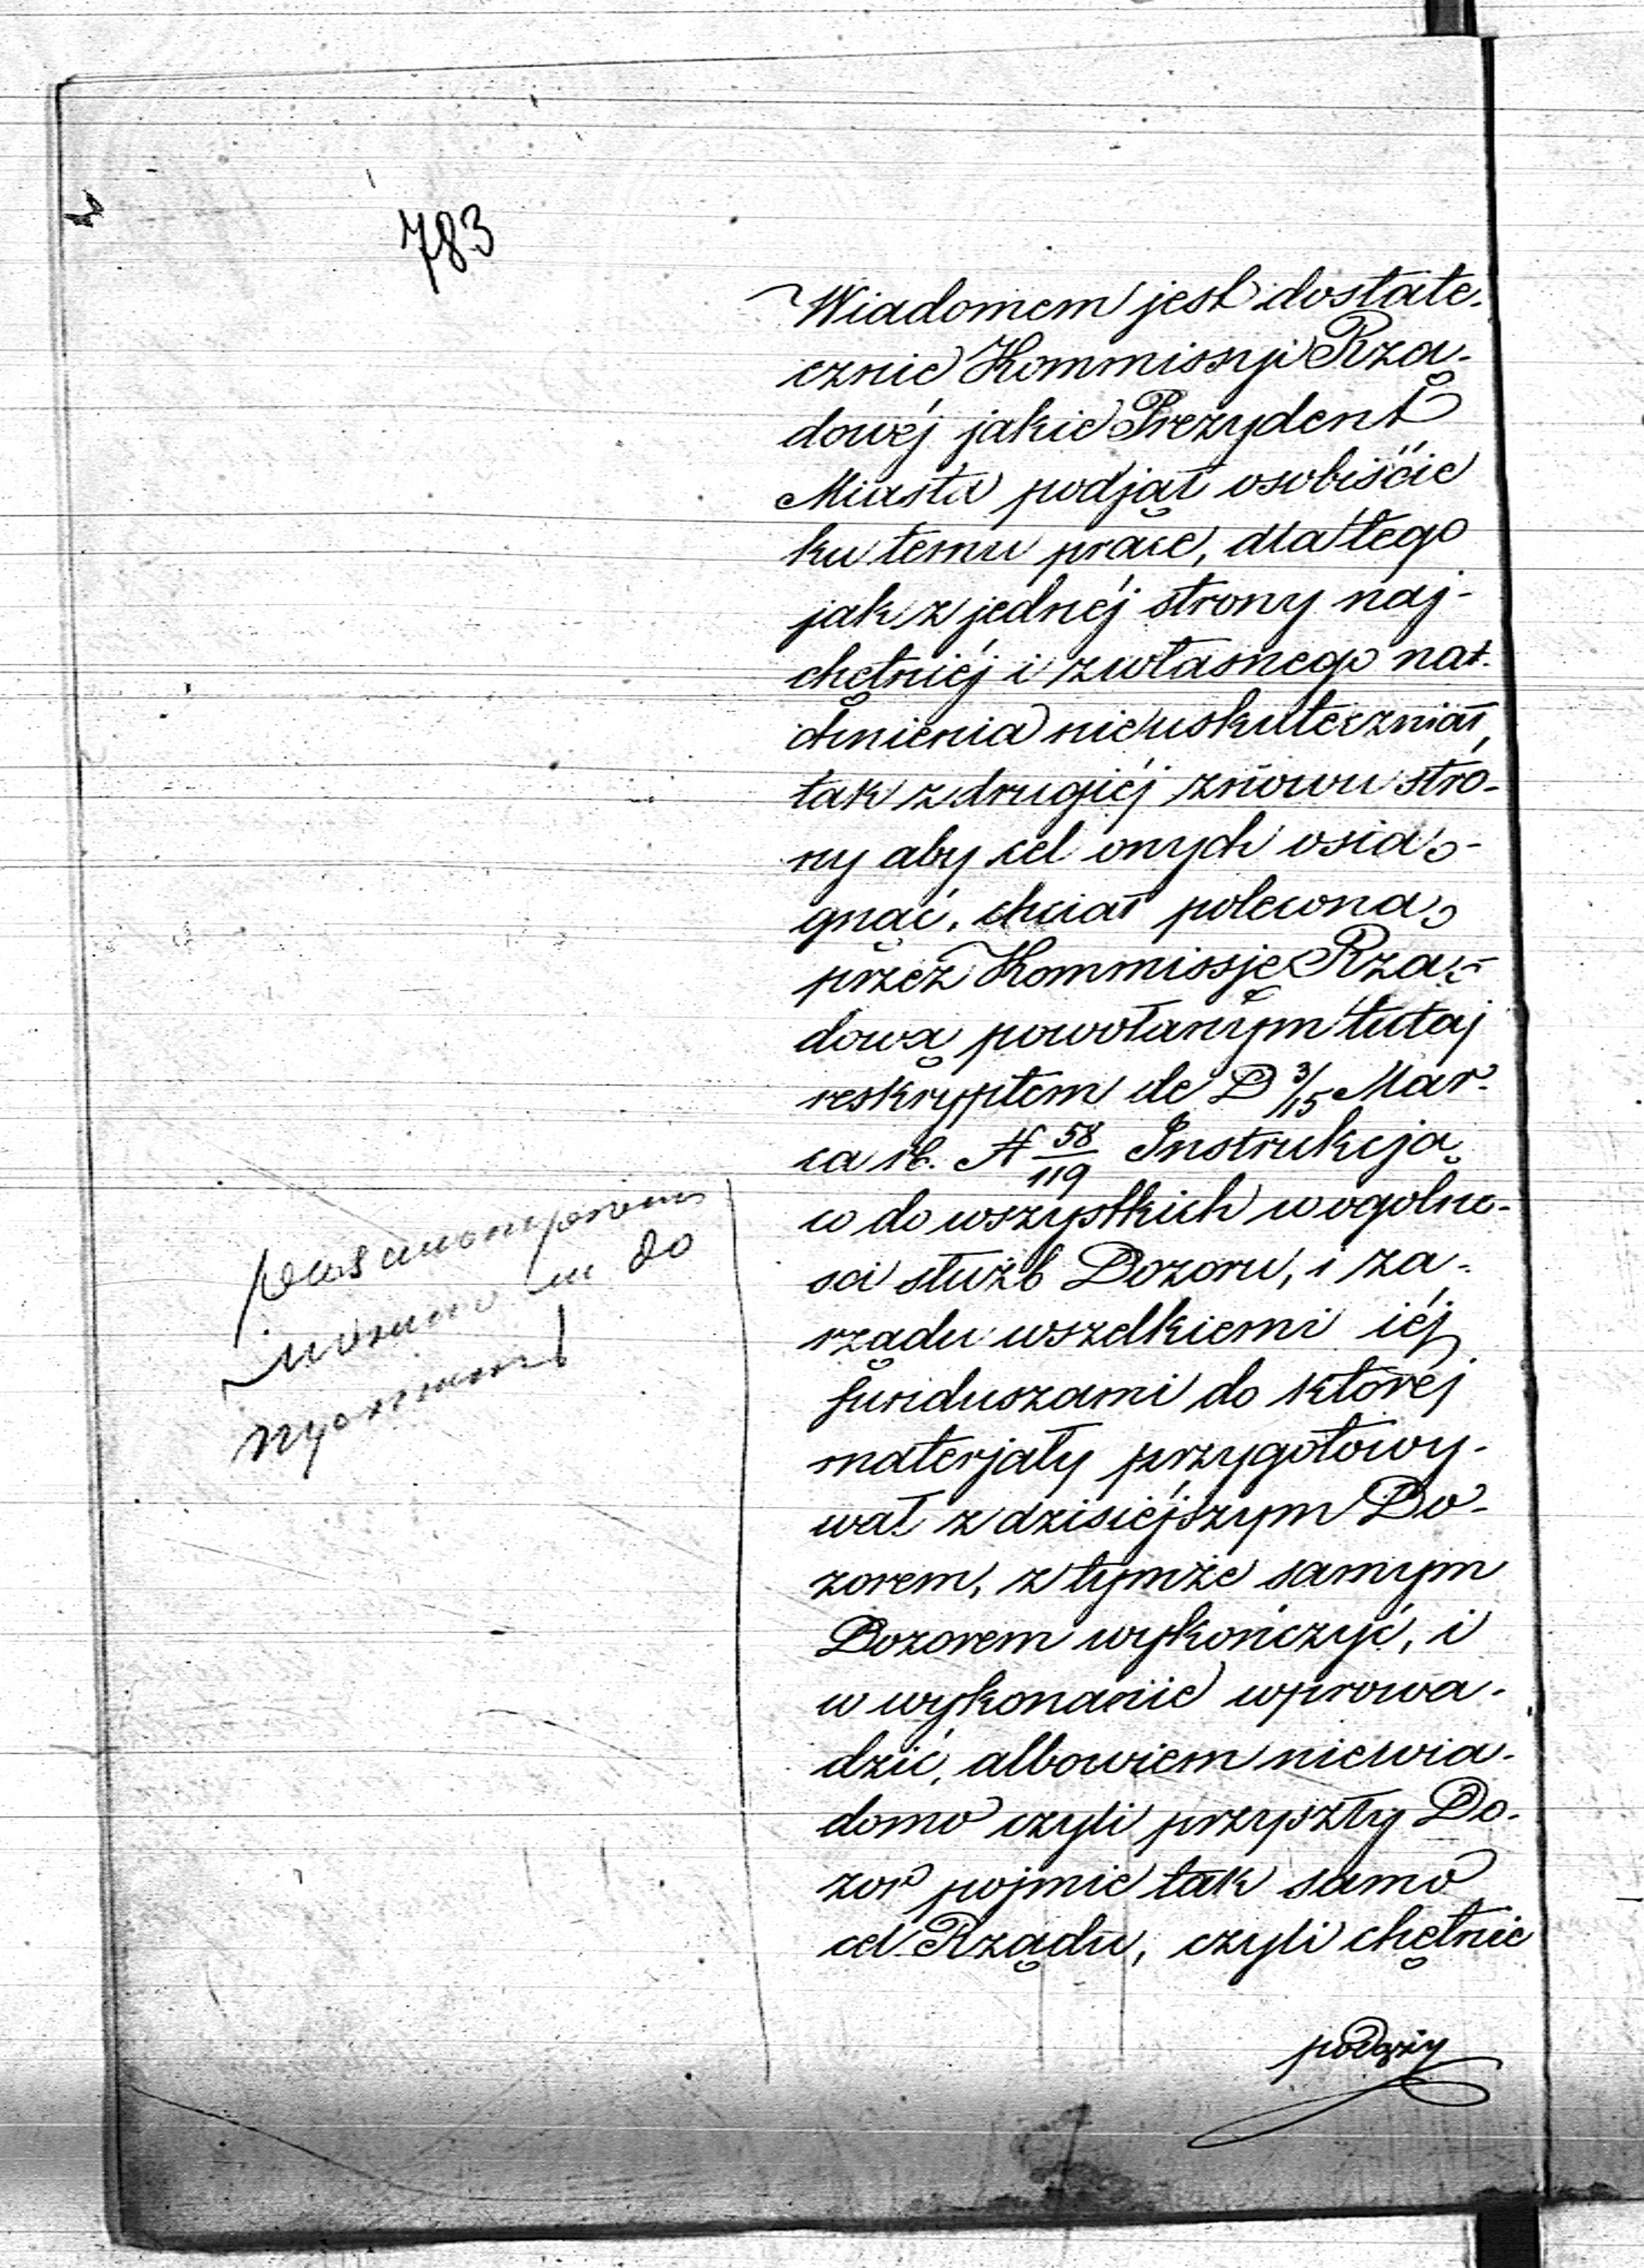 783
Wiadomem jest dostate-
cznie Kommissyi Rzą-
dowéj jakie Prezydent
Miasta podjął osobiście
ku temu prace, dla tego
jak z jednéj strony naj-
chętniéj i z własnego nat-
chnienia nie uskuteczniał,
tak z drugiéj znowu stro-
ny aby cel onych osią-
gnąć, chciał poleconą
przez Kommissję Rzą-
dową powołanym tutaj
reskryptem de D 3/15 Mar-
ca rb. N 58/119 Instrukcją
co do wszystkich w ogolno-
sci służb Dozoru, i za-
rządu wszelkiemi iéj
funduszami do któréj
materjały przygotowy-
wał z dzisiéjszym Do-
zorem, z tymże samym
Dozorem wykończyć, i
w wykonanie wprowa-
dzić, albowiem niewia-
domo czyli przyszły Do-
zor pojmie tak samo
cel Rządu, czyli chętnie
do